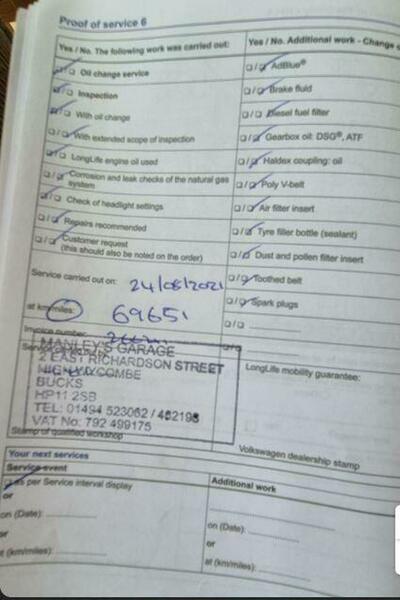 Proof of service 6
Yes / No. The following work was carried out:
Oil change service
Inspection
With oil change
With extended scope of inspection
LongLife engine oil used
Corrosion and leak checks of the natural gas
system
Check of headlight settings
Repairs recommended
Customer request
(this should also be noted on the order)
Service carried out on: 24/08/2021
at km/miles: 69651
Invoice number:
MANLEY'S GARAGE
2 EAST RICHARDSON STREET
HIGH WYCOMBE
BUCKS
HP11 2SB
TEL: 01494 523062 /
VAT No: 792 499175
Stamp of qualified workshop
Yes / No. Additional work - Change
AdBlue®
Brake fluid
Diesel fuel filter
Gearbox oil: DSG®, ATF
Haldex coupling: oil
Poly V-belt
Air filter insert
Tyre filler bottle (sealant)
Dust and pollen filter insert
Toothed belt
Spark plugs
LongLife mobility guarantee:
Volkswagen dealership stamp
Your next services
Service event
as per Service interval display
or
on (Date):
or
at (km/miles):
Additional work
on (Date):
or
at (km/miles):